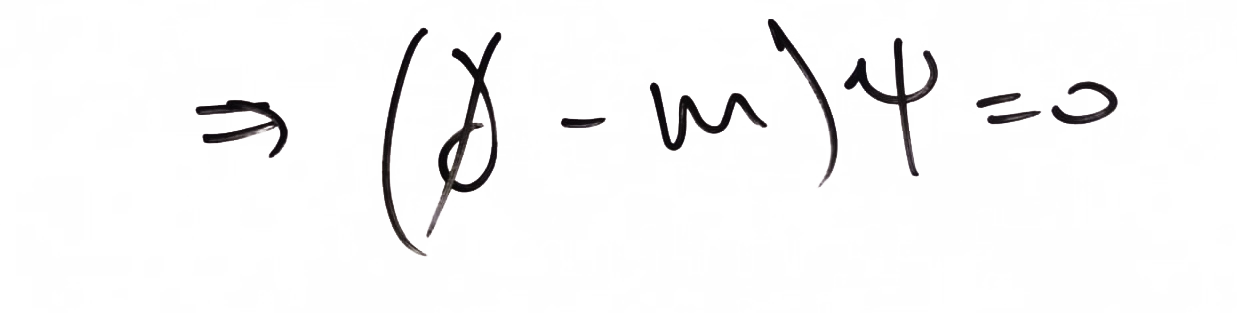 ⇒ (∂̸ - m)ψ = 0